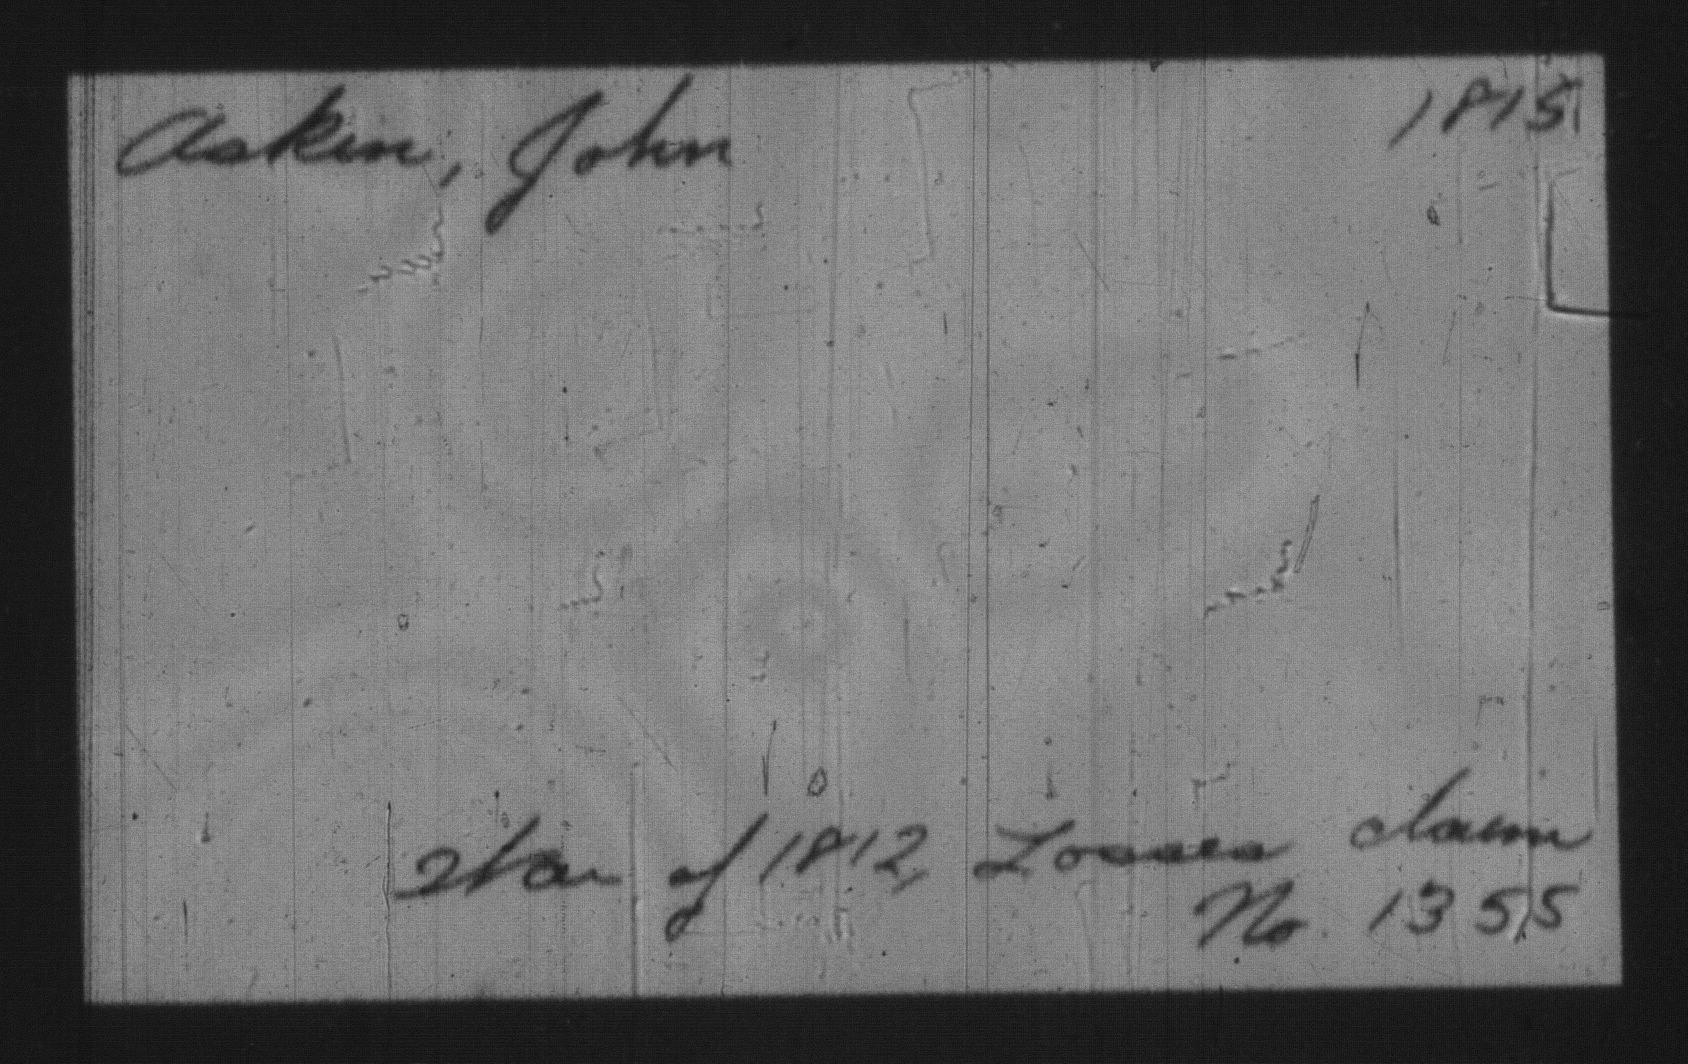 Askin, John 1815
War of 1812, Losses claim
No. 1355